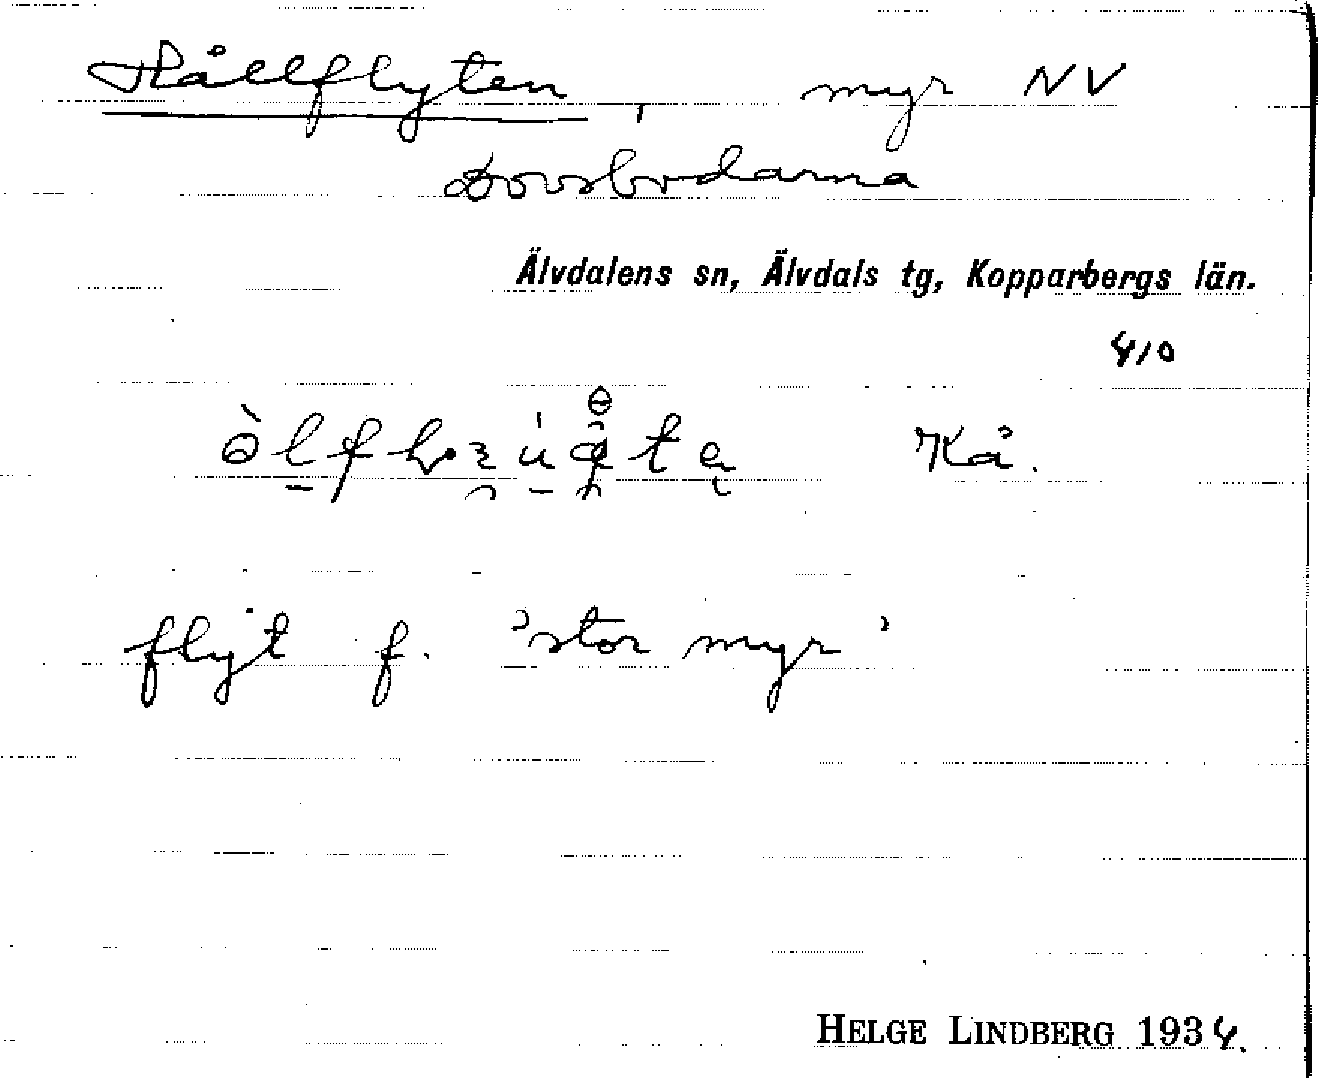 Hållflyten, myr NV
Dovsbodarna
Älvdalens sn, Älvdals tg, Kopparbergs län.
410
Kå.
flyt f. 'stor myr'
HELGE LINDBERG 1934.